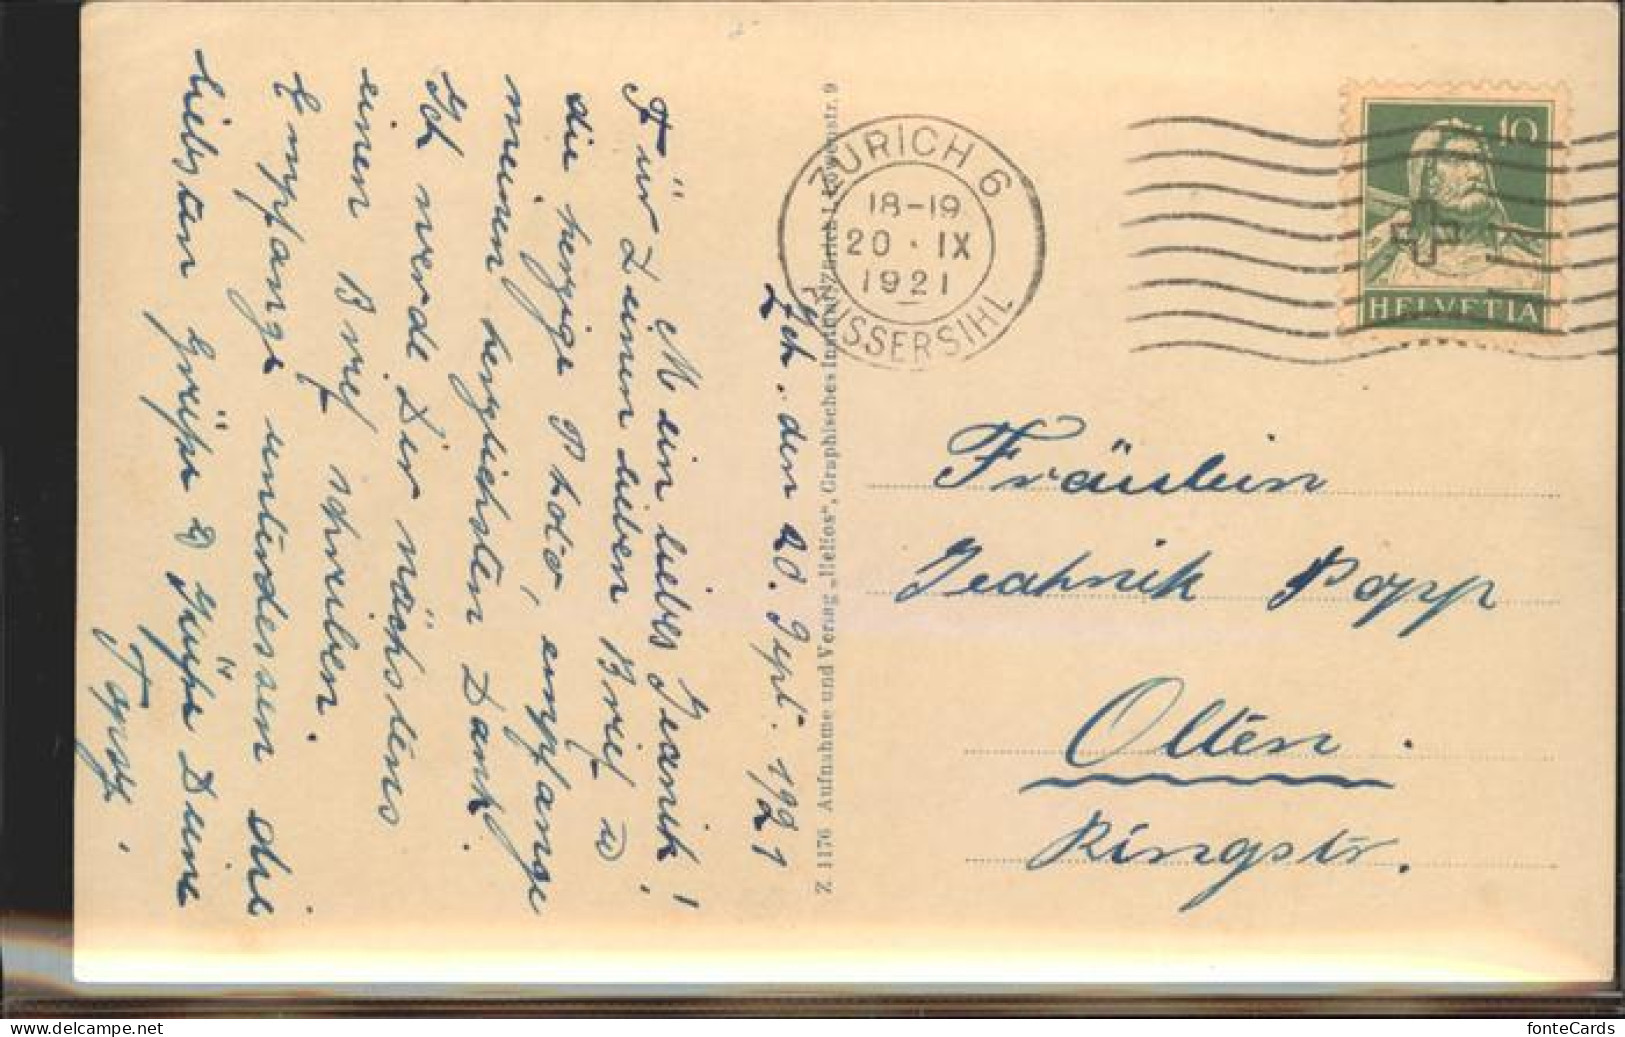 Zch. den 20. Sept. 1921
Mein liebes Jeanik!
Für Deinen lieben Brief u.
die herzige Photo, empfange
meinen herzlichsten Dank.
Ich werde Dir nächstens
einen Brief schreiben.
Empfange unterdessen die
liebsten Grüsse & Küsse Deine
Z 1176 Aufnahme und Verlag „Helios“, Graphisches Institut, Zürich 1, Löwenstr. 9
ZÜRICH 6
18-19
20 · IX
1921
AUSSERSIHL
10
HELVETIA
Fräulein
Jeahnik Popp
Olten.
Ringstr.
delcampe.net
fonteCards